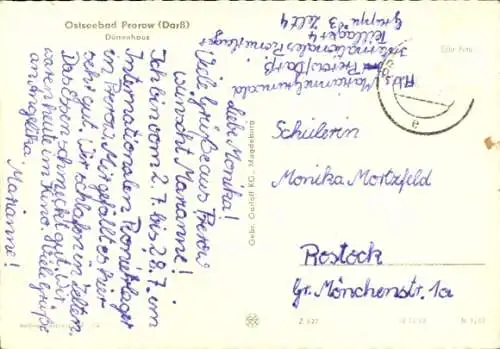 Ostseebad Prerow (Darß)
Dünenhaus
Abs. Marianne Grunwald
Prerow/Darß
Internationales Pionierlager
Teillager 4
Gruppe 3 Zelt 4
Liebe Monika!
Viele Grüße aus Prerow
wünscht Marianne!
Ich bin vom 2.7. bis 28.7. im
Internationalen Pionierlager
in Prerow. Mir gefällt es hier
sehr gut. Wir schlafen in Zelten.
Das Essen schmeckt gut. Wir
waren heute im Kino. Viele Grüße
an Angelika.
Marianne!
Gebr. Garloff KG., Magdeburg
Schülerin
Monika Mortzfeld
Rostock
Gr. Mönchenstr. 1a
Z 627